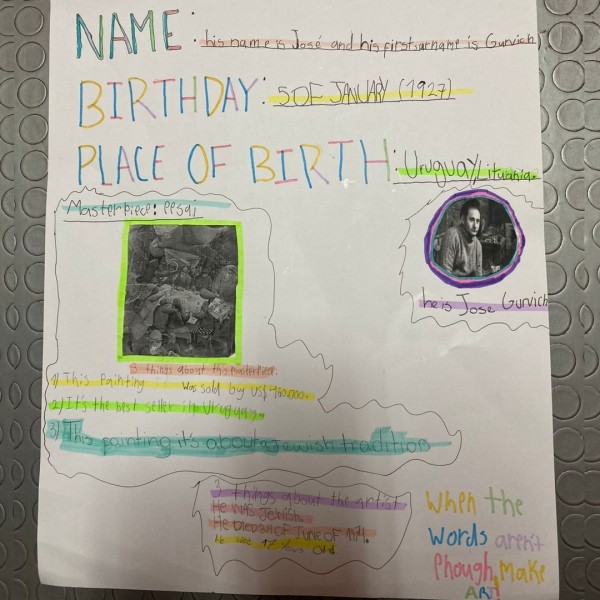 NAME: his name is José and his firstsurname is Gurvich
BIRTHDAY: 5 OF JANUARY (1927)
PLACE OF BIRTH: Uruguay/lituania.
Masterpiece: pesaj
he is Jose Gurvich
3 things about this masterpiece:
1) This Painting Was sold by US$
2) It's the best seller in Uruguay.
3) This painting it's about Jewish tradition
3 things about the artist
He was Jewish.
He of June of
he was 47 years old
When the
words aren't
enough, make
ART!